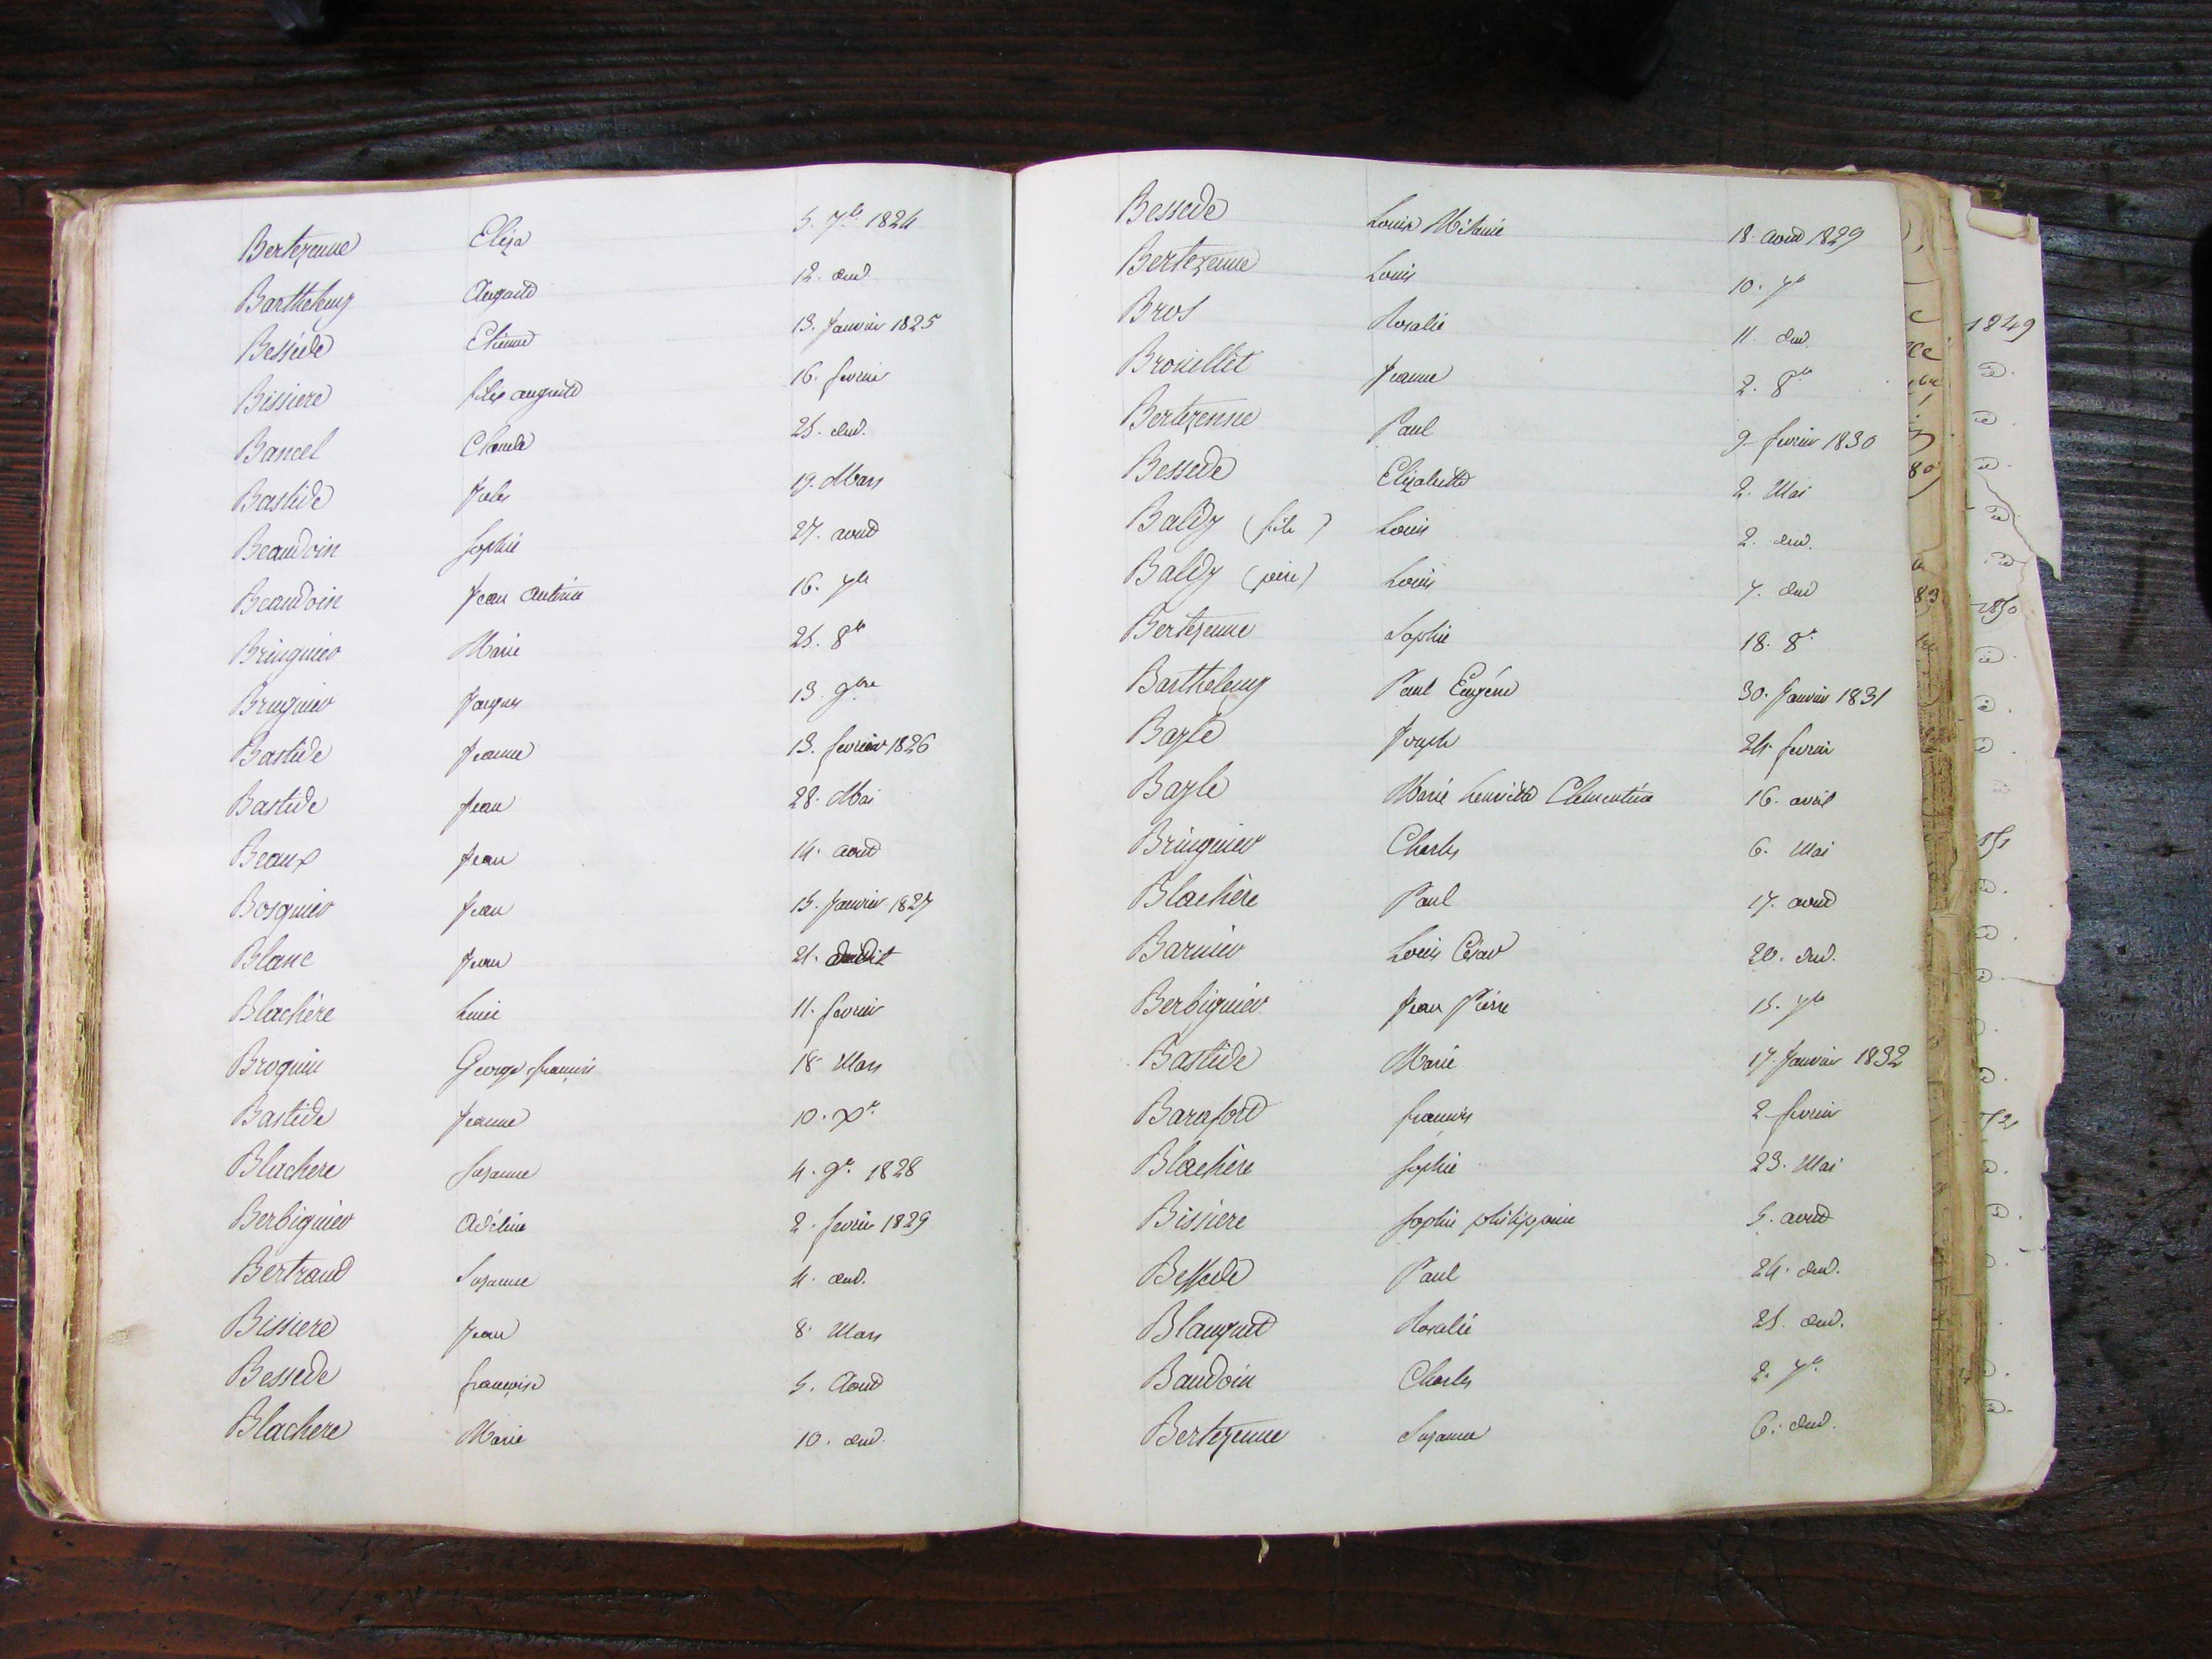 Bertezenne Eliza 5. 7bre 1824
Barthelemy Auguste 12. dud.
Bessède Etienne 13. Janvier 1825
Bissiere felix auguste 16. fevrier
Bancel Claude 25. dud.
Bastide Jules 19. Mars
Beaudoin Sophie 27. aout
Beaudoin Jean Antoine 16. 7bre
Bringuier Marie 25. 8bre
Bruguier Jacques 13. 9bre
Bastide Jeanne 13. fevrier 1826
Bastide Jean 28. Mai
Beaux Jean 14. aout
Bosquier Jean 15. Janvier 1827
Blanc Jean 21. dudit
Blachère Lucie 11. fevrier
Broquin George francois 18. Mars
Bastide Jeanne 10. Xr.
Blachere Suzanne 4. 9r. 1828
Berbiguier Adéline 2. fevrier 1829
Bertrand Suzanne 4. dud.
Bissiere Jean 8. Mars
Bessede francoise 5. Aout
Blachere Marie 10. dud.
Bessede Louise Mélanie 18. aout 1829
Bertezenne Louis 10. 7bre
Bros Rosalie 11. dud.
Brouillet Jeanne 2. 8bre
Bertezenne Paul 9. fevrier 1830
Bessede Elizabeth 2. Mai
Baldy (fils) Louis 2. dud.
Baldy (père) Louis 7. dud
Bertezenne Sophie 18. 8r.
Barthelemy Paul Eugène 30. Janvier 1831
Bazle Joseph 24. fevrier
Bazle Marie henriette Clementine 16. avril
Bringuier Charles 6. Mai
Blachère Paul 17. aout
Barnier Louis César 20. dud.
Berbiguier Jean Pierre 15. 7bre
Bastide Marie 17. Janvier 1832
Barafort francois 2. fevrier
Blachère Sophie 23. Mai
Bissiere Sophie philippine 5. aout
Bessede Paul 24. dud.
Blanquet Rosalie 25. dud.
Baudoin Charles 2. 7bre
Bertezenne Suzanne 6. dud.
1849
1850